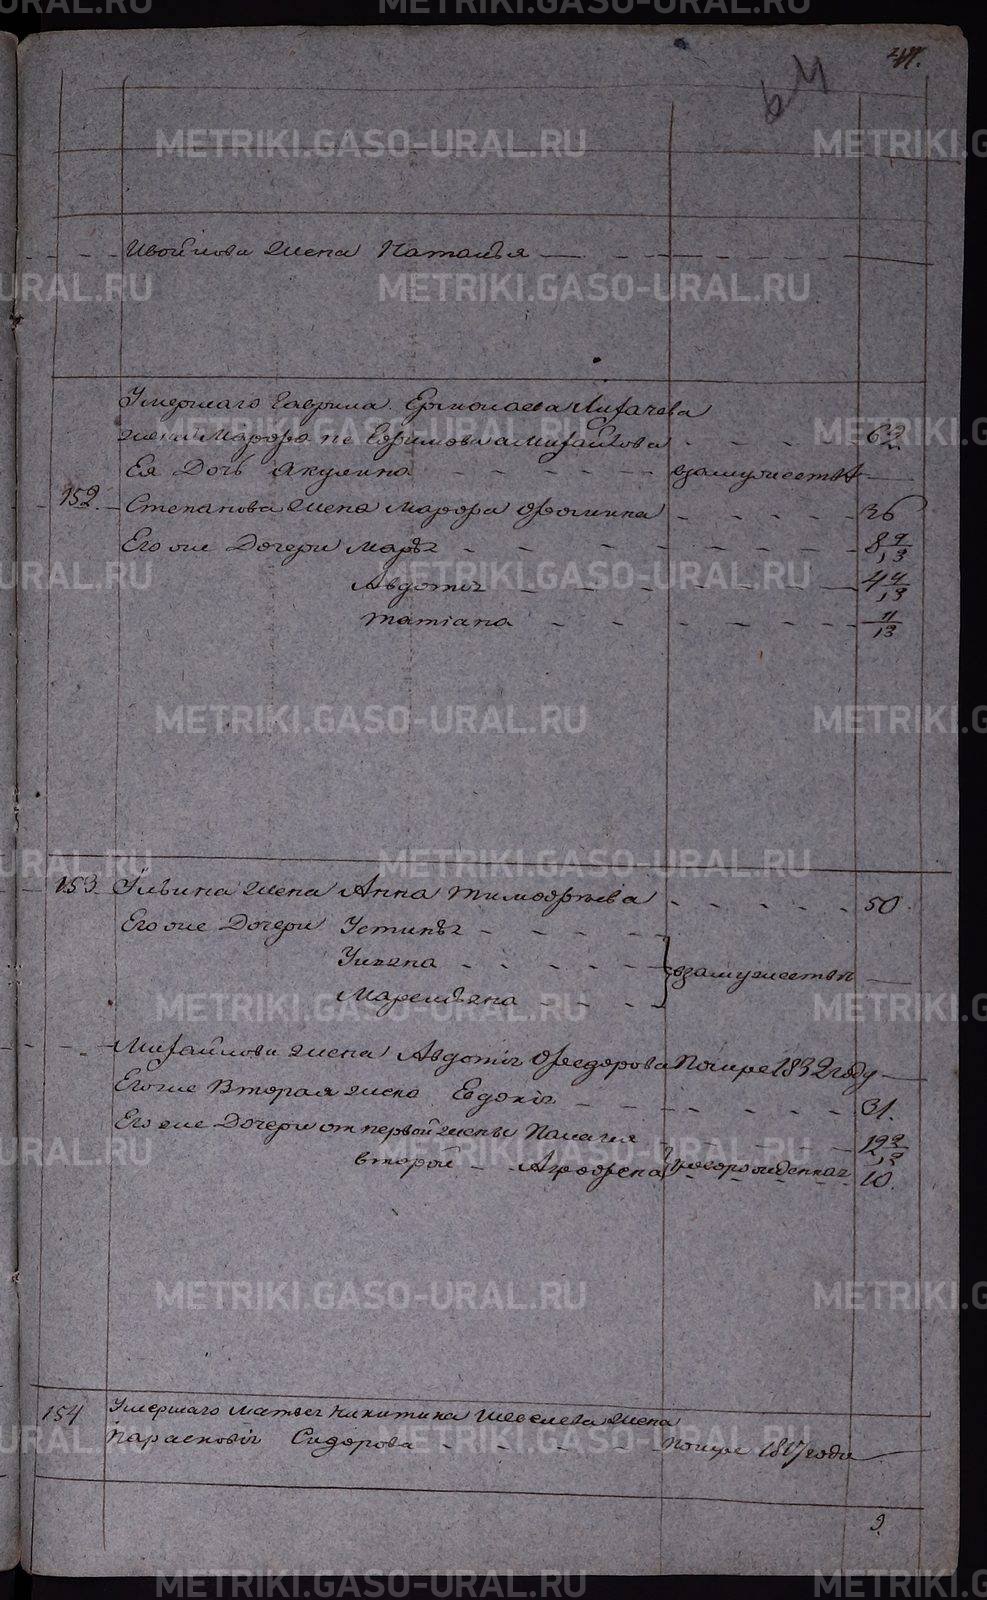 41.
64
Ивойлова жена Наталья
Умершаго Гаврила Ермолаева Лихачева
жены Марфа не Ефимова а Михайлова 62
Ея Дочь Акулина взамужестве
152. Степанова жена Марфа Фомина 36
Его же Дочери Марья 8 9/13
Авдотья 4 4/13
Татiана 11/13
153 Ильина жена Анна Тимофеева 50
Его же Дочери Устинья
Ульяна взамужестве
Маремьяна
Михайлова жена Авдотья Федорова Помре 1832 году
Его же Вторая жена Евдокiя 31.
Его же Дочери от первой жены Палагея 12 3/13
второй Агрофена 10.
154 Умершаго Матвея Никитина Шевелева жена
Парасковiя Сидорова помре 1817 года
9.
METRIKI.GASO-URAL.RU